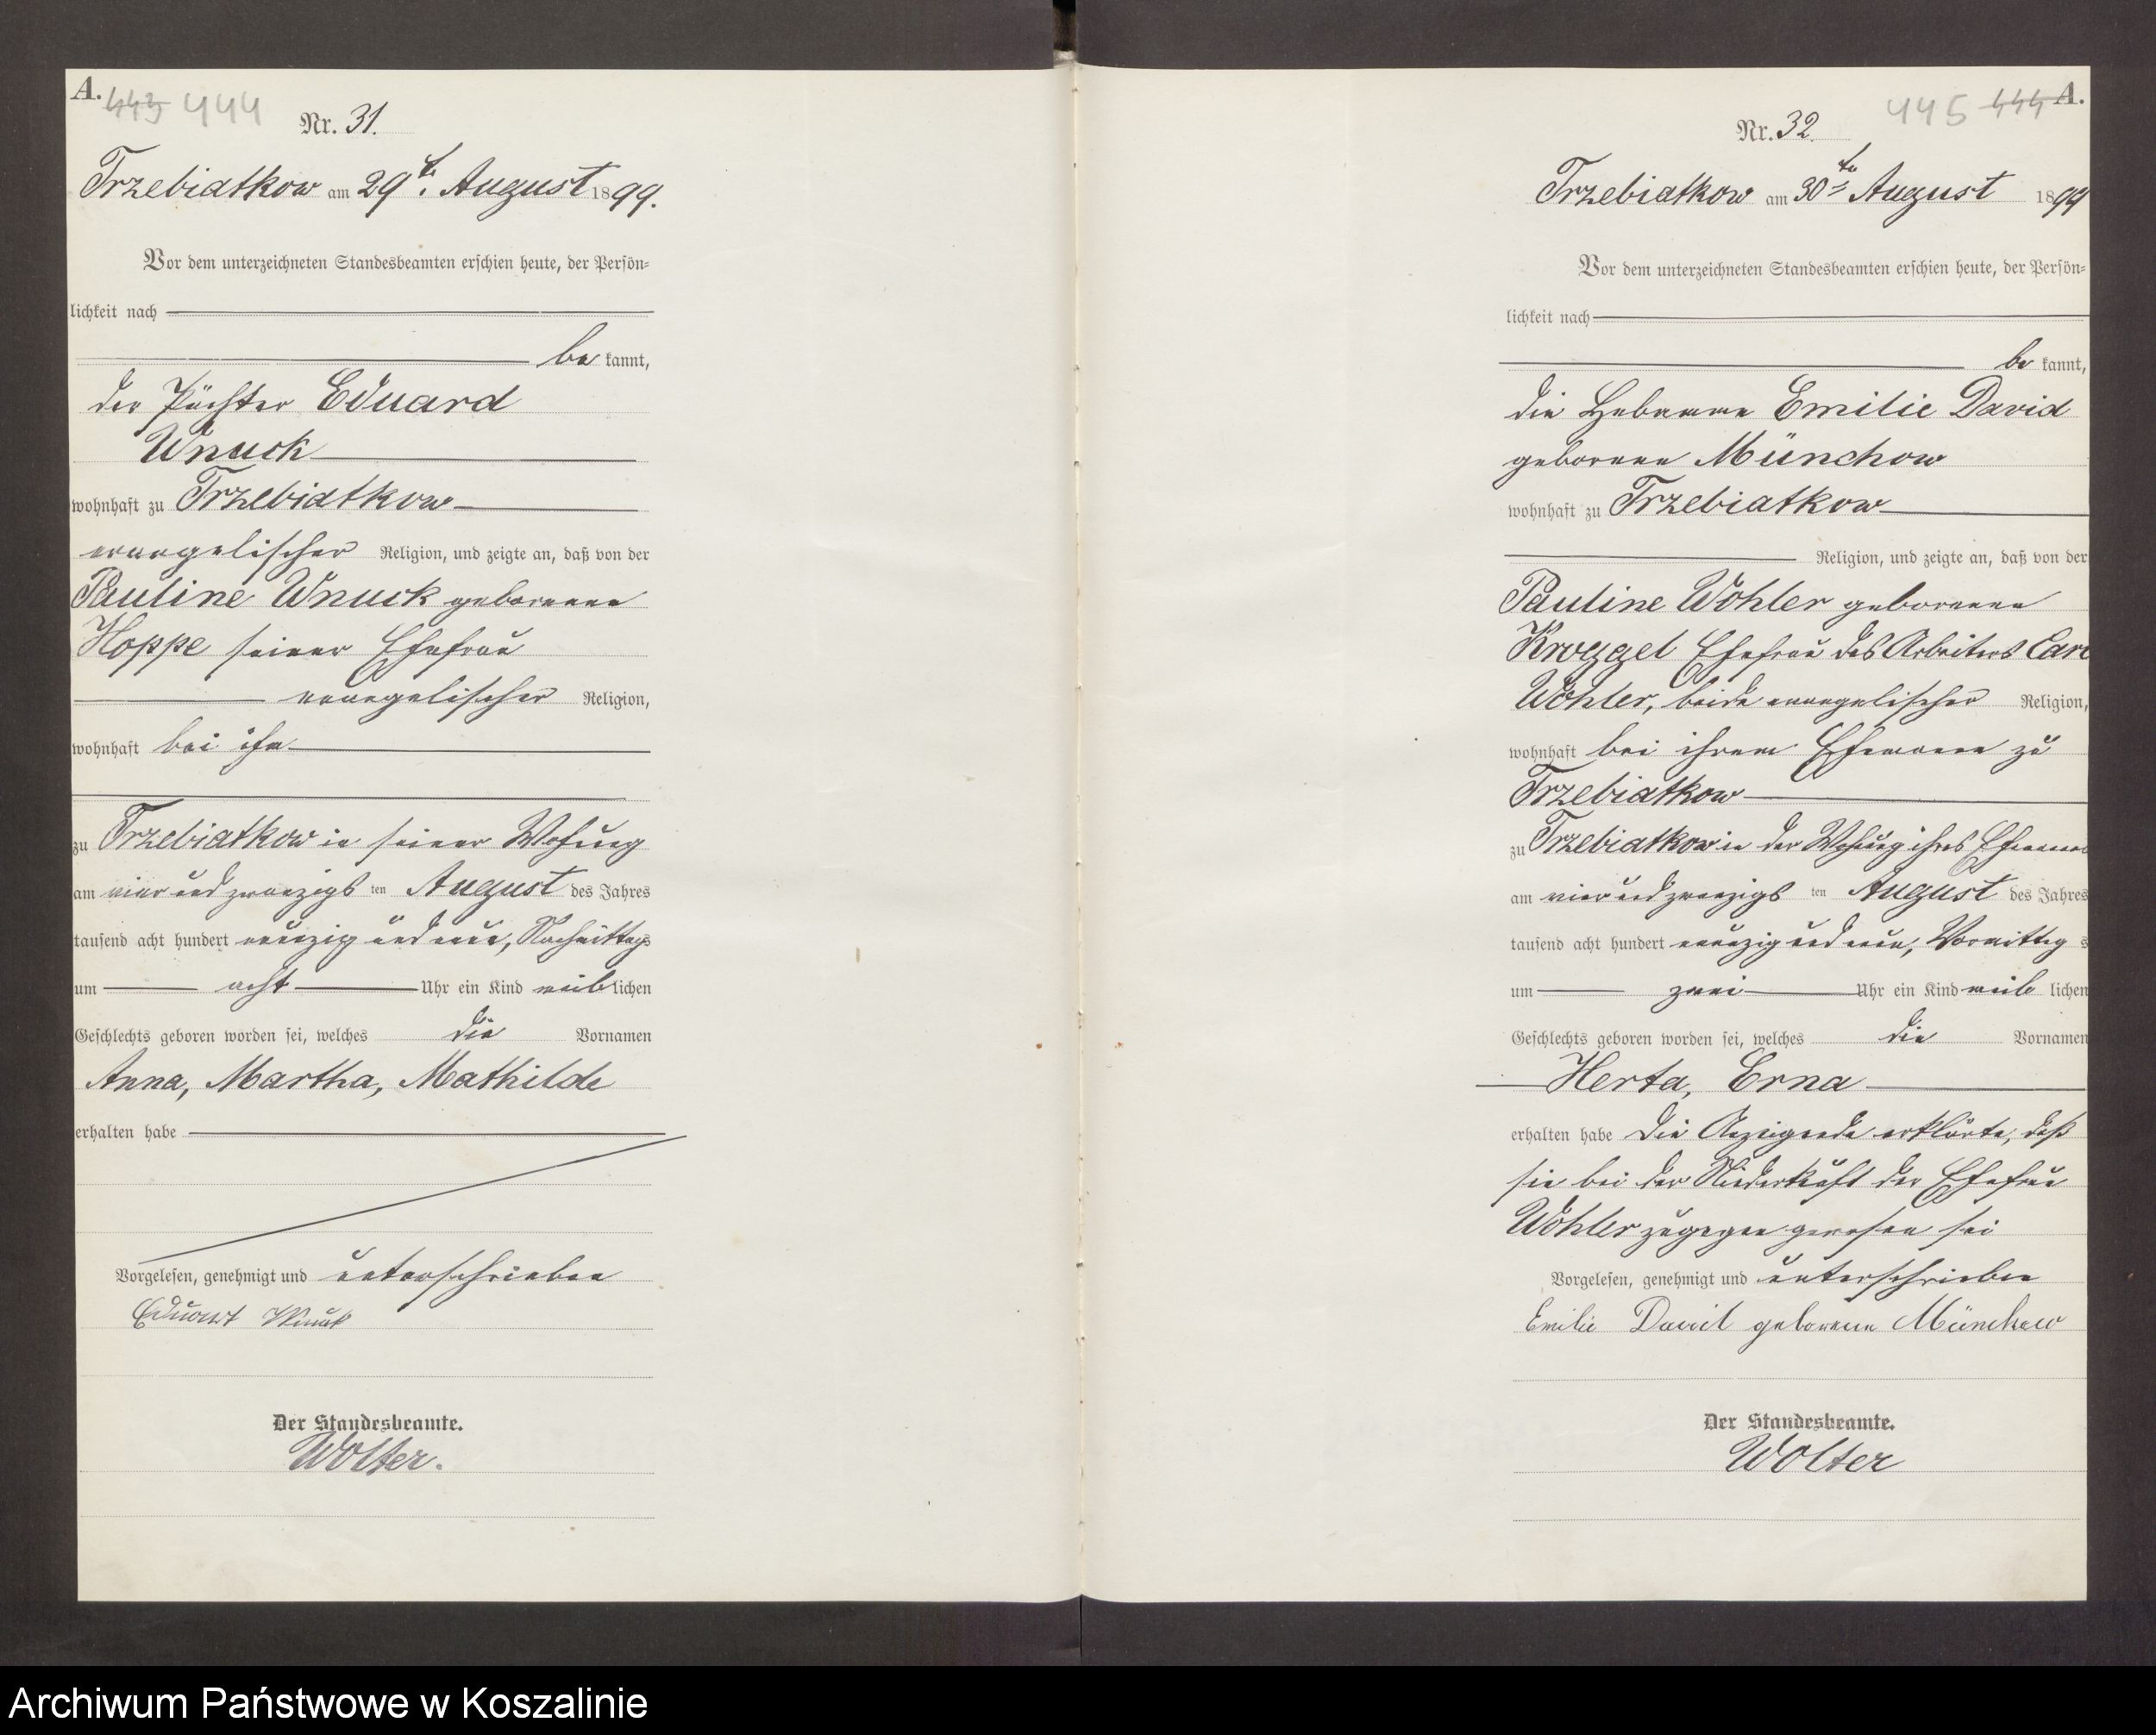 A.
443 444
Nr. 31.
Trzebiatkow am 29ten August 1899.
Vor dem unterzeichneten Standesbeamten erschien heute, der Persön-
lichkeit nach
be kannt,
der Pächter Eduard
Wnuck
wohnhaft zu Trzebiatkow
evangelischer Religion, und zeigte an, daß von der
Pauline Wnuck geborenen
Hoppe seiner Ehefrau
evangelischer Religion,
wohnhaft bei ihm
zu Trzebiatkow in seiner Wohnung
am vier und zwanzigs ten August des Jahres
tausend acht hundert neunzig und neun, Nachmittags
um acht Uhr ein Kind weiblichen
Geschlechts geboren worden sei, welches die Vornamen
Anna, Martha, Mathilde
erhalten habe
Vorgelesen, genehmigt und unterschrieben
Eduard Wnuck
Der Standesbeamte.
Wolter.
445 444 A.
Nr. 32.
Trzebiatkow am 30ten August 1899
Vor dem unterzeichneten Standesbeamten erschien heute, der Persön-
lichkeit nach
be kannt,
die Hebamme Emilie David
geborene Münchow
wohnhaft zu Trzebiatkow
Religion, und zeigte an, daß von der
Pauline Wöhler geborenen
Kroggel Ehefrau des Arbeiters Carl
Wöhler, beide evangelischer Religion,
wohnhaft bei ihrem Ehemann zu
Trzebiatkow
zu Trzebiatkow in der Wohnung ihres Ehemannes
am vier und zwanzigs ten August des Jahres
tausend acht hundert neunzig und neun, Vormittag s
um zwei Uhr ein Kind weib lichen
Geschlechts geboren worden sei, welches die Vornamen
Herta, Erna
erhalten habe Die Anzeigende erklärte, daß
sie bei der Niederkunft der Ehefrau
Wöhler zugegen gewesen sei
Vorgelesen, genehmigt und unterschrieben
Emilie David geborene Münchow
Der Standesbeamte.
Wolter
Archiwum Państwowe w Koszalinie